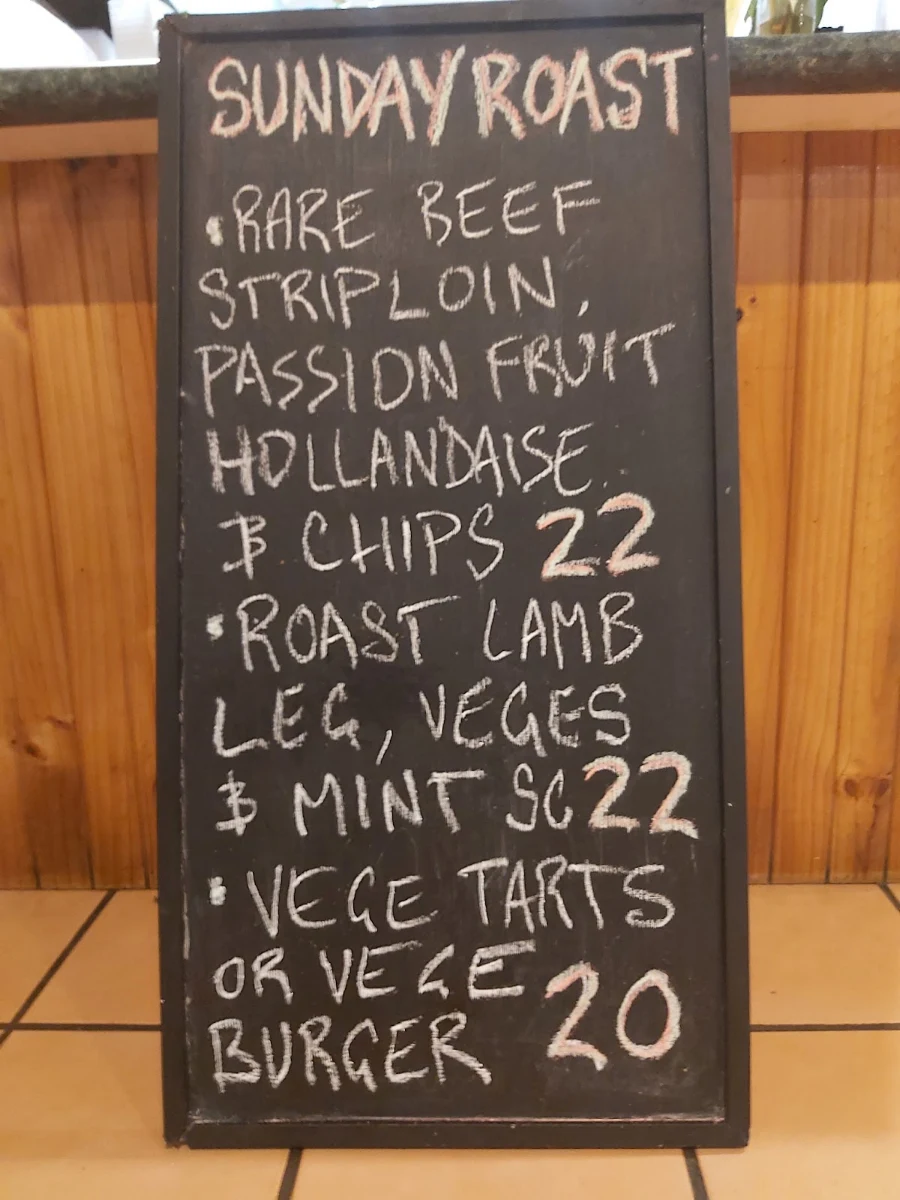 SUNDAY ROAST
• RARE BEEF
STRIPLOIN,
PASSION FRUIT
HOLLANDAISE
& CHIPS 22
• ROAST LAMB
LEG, VEGES
& MINT SC 22
• VEGE TARTS
OR VEGE
BURGER 20